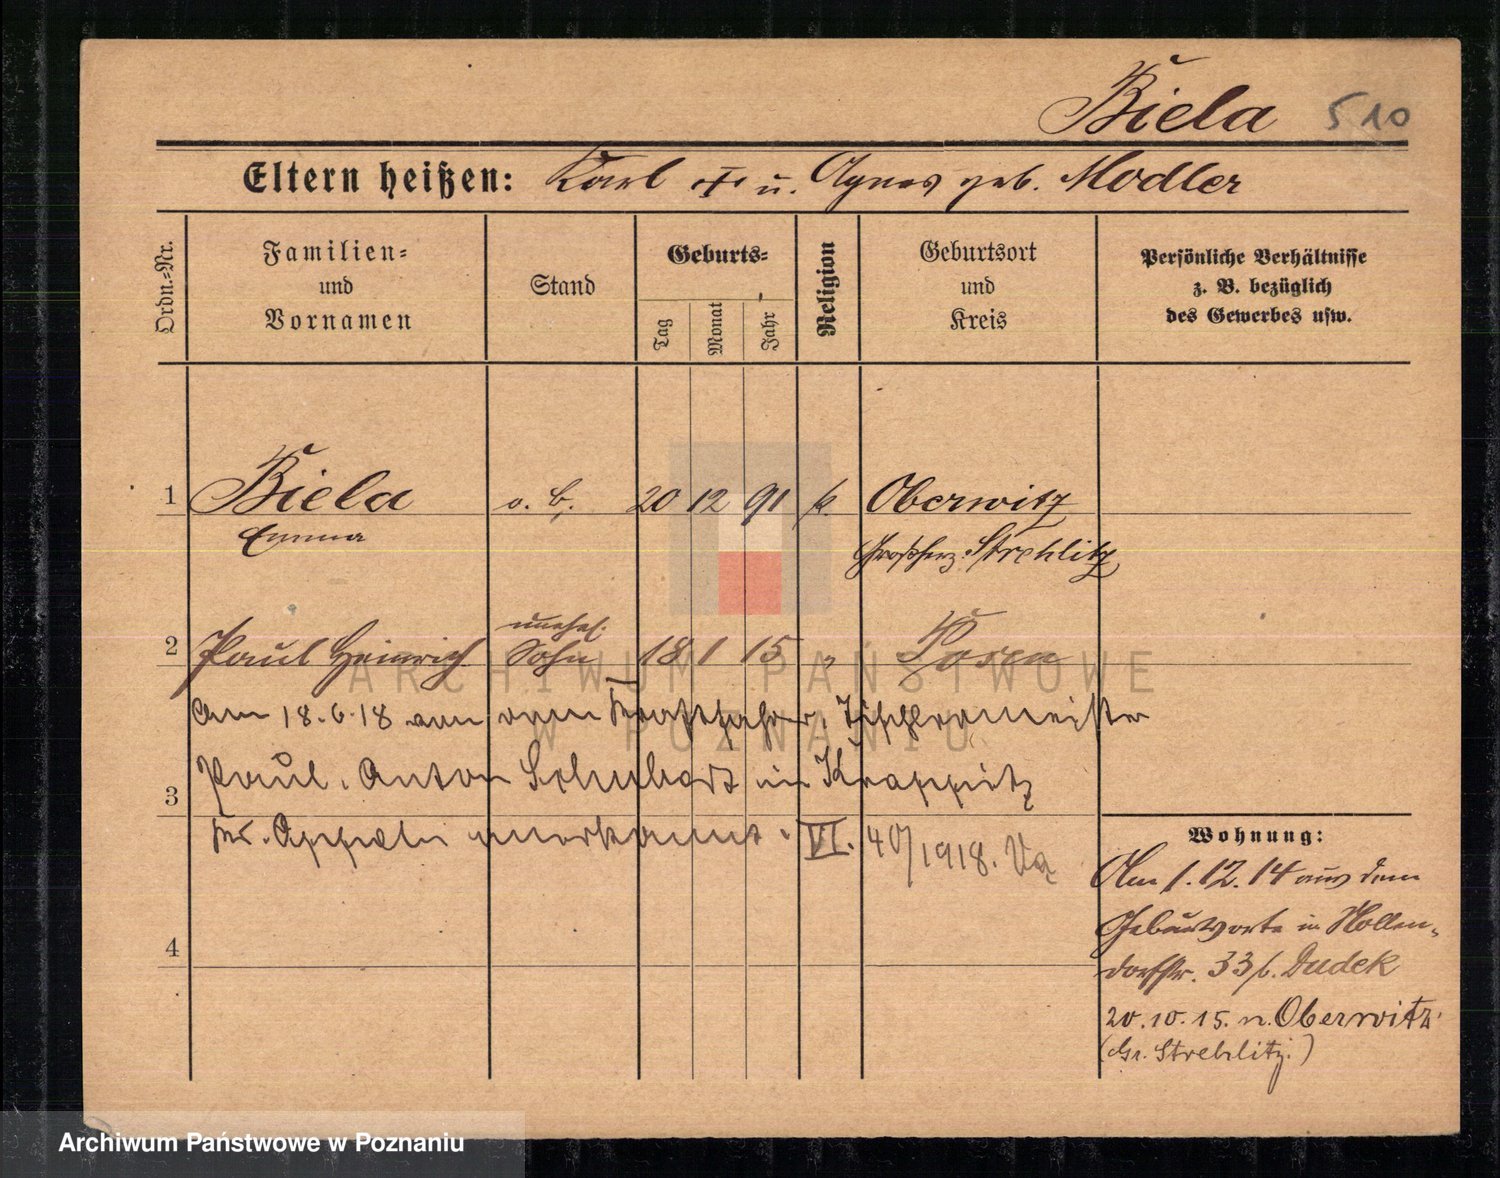 Biela 510
Eltern heißen: Karl † u. Agnes geb. Modler
Ordn.=Nr.
Familien=
und
Vornamen
Stand
Geburts=
Tag
Monat
Jahr
Religion
Geburtsort
und
Kreis
Persönliche Verhältnisse
z. B. bezüglich
des Gewerbes usw.
1 Biela o. b. 20 12 91 k. Oberwitz
Emma Großherz. Strehlitz
unehel.
2 Paul Heinrich Sohn 18 1 15 " Posen
Am 18.6.18 von vom Kraftfahrer, Tischlermeister
Paul Anton Schubert in Krappitz
3
Kr. Oppeln anerkannt. VI. 40/1918.
Wohnung:
Am 1.12.14 aus dem
Geburtsorte in Hollen-
dorfstr. 33 b. Dudek
4
20.10.15. n. Oberwitz
(Gr. Strehlitz.)
ARCHIWUM PAŃSTWOWE
W POZNANIU
Archiwum Państwowe w Poznaniu